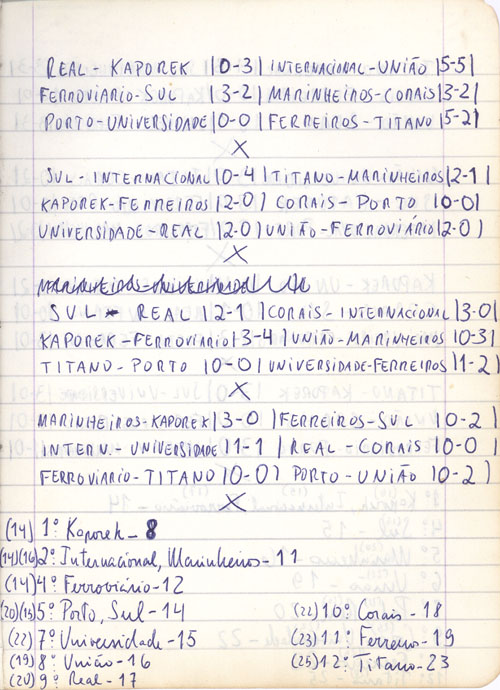 REAL - KAPOREK |0-3| INTERNACIONAL-UNIÃO |5-5|
FERROVIARIO-SUL |3-2| MARINHEIROS-CORAIS |3-2|
PORTO-UNIVERSIDADE |0-0| FERREIROS-TITANO |5-2|
X
SUL-INTERNACIONAL |0-4| TITANO-MARINHEIROS |2-1|
KAPOREK-FERREIROS |2-0| CORAIS-PORTO |0-0|
UNIVERSIDADE-REAL |2-0| UNIÃO-FERROVIÁRIO |2-0|
X
SUL - REAL |2-1| CORAIS-INTERNACIONAL |3-0|
KAPOREK-FERROVIARIO |3-4| UNIÃO-MARINHEIROS |0-3|
TITANO-PORTO |0-0| UNIVERSIDADE-FERREIROS |1-2|
X
MARINHEIROS-KAPOREK |3-0| FERREIROS-SUL |0-2|
INTERN.-UNIVERSIDADE |1-1| REAL-CORAIS |0-0|
FERROVIARIO-TITANO |0-0| PORTO-UNIÃO |0-2|
X
(14) 1º Kaporek - 8
(14)(16) 2º Internacional, Marinheiros - 11
(14) 4º Ferroviário - 12
5º Porto, Sul - 14 (22) 10º Corais - 18
(22) 7º Universidade - 15 (23) 11º Ferreiro - 19
(19) 8º União - 16 (25) 12º Titano - 23
(20) 9º Real - 17